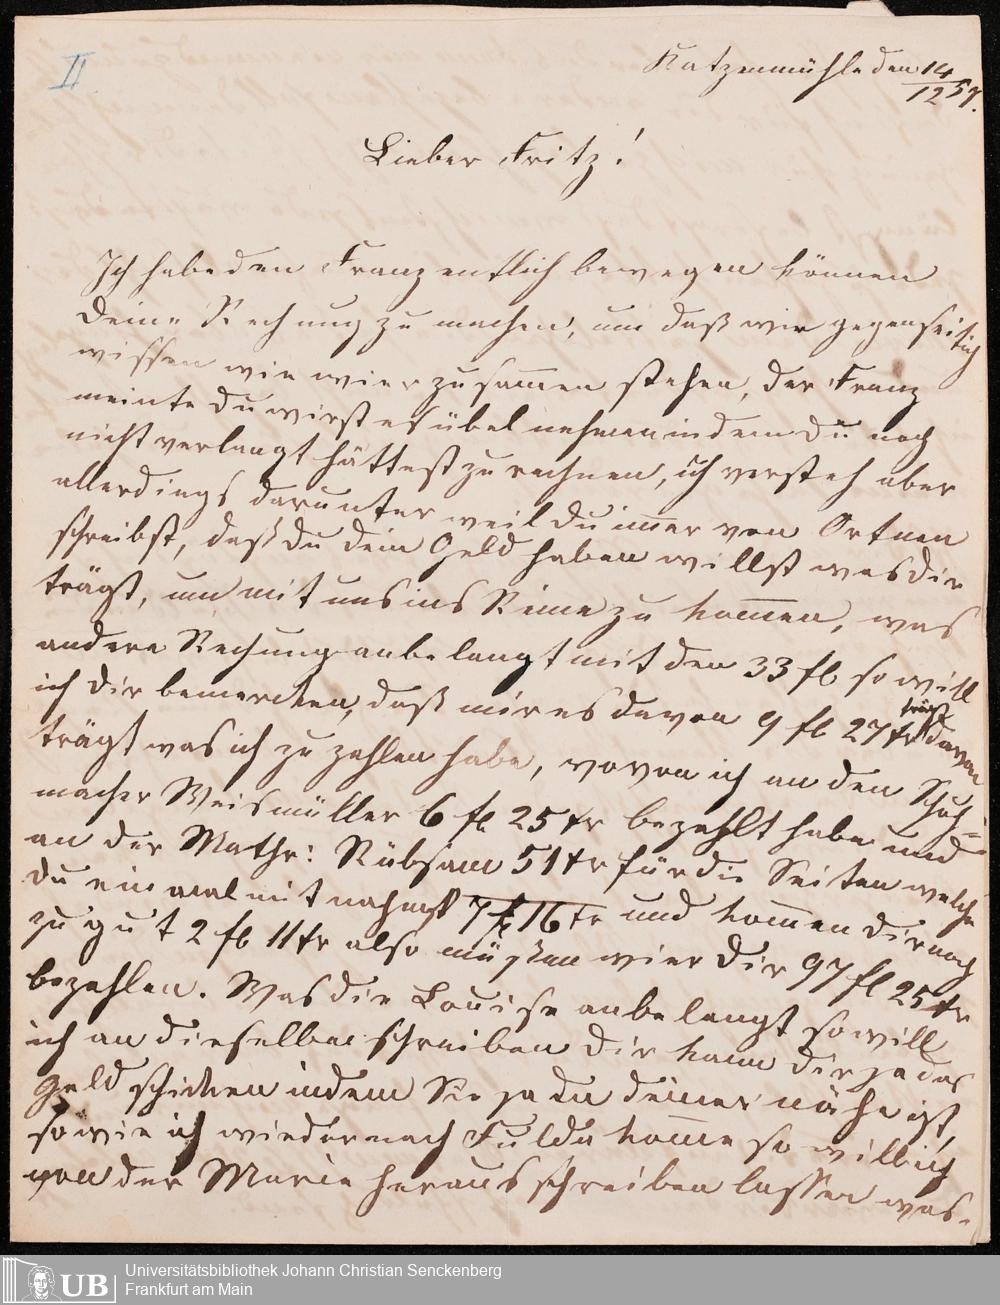 II
Katzenmühle den 14/12 57.
Lieber Fritz!
Ich habe den Franz entlich bewegen können
deine Rechnung zu machen, um daß wir gegenseitich
wissen wie wier zusamen stehen, der Franz
meinte du wirst es übel nehmen indem du noch
nicht verlangt hättest zu rechnen, ich versteh aber
allerdings darunter weil du imer von Ortnen
schreibst, daß du dein Geld haben willst was dir
trägt, um mit uns ins Reine zu komen, was
andere Rechung anbelangt mit den 33 fl so will
ich dir bemercken, daß mir es davon 9 fl 27 xr davon
trägt
trägt was ich zu zahlen habe, wovon ich an den Schuh=
macher Weismüller 6 fl 25 xr bezahlt habe und
an der Mathr: Rübsam 51 xr für die Seiten welche
du ein mal mit nahmst 7 fl 16 xr und komen dir noch
zu gut 2 fl 11 xr also müßen wier dir 97 fl 25 xr
bezahlen. Was die Louise anbelangt so will
ich an dieselben schreiben die kann dir ja das
Geld schicken indem Sie ja in deiner nähe ist,
sowie ich wieder nach Fulda kome so will ich
von der Marie heraus schreiben lassen was.
UB
Universitätsbibliothek Johann Christian Senckenberg
Frankfurt am Main